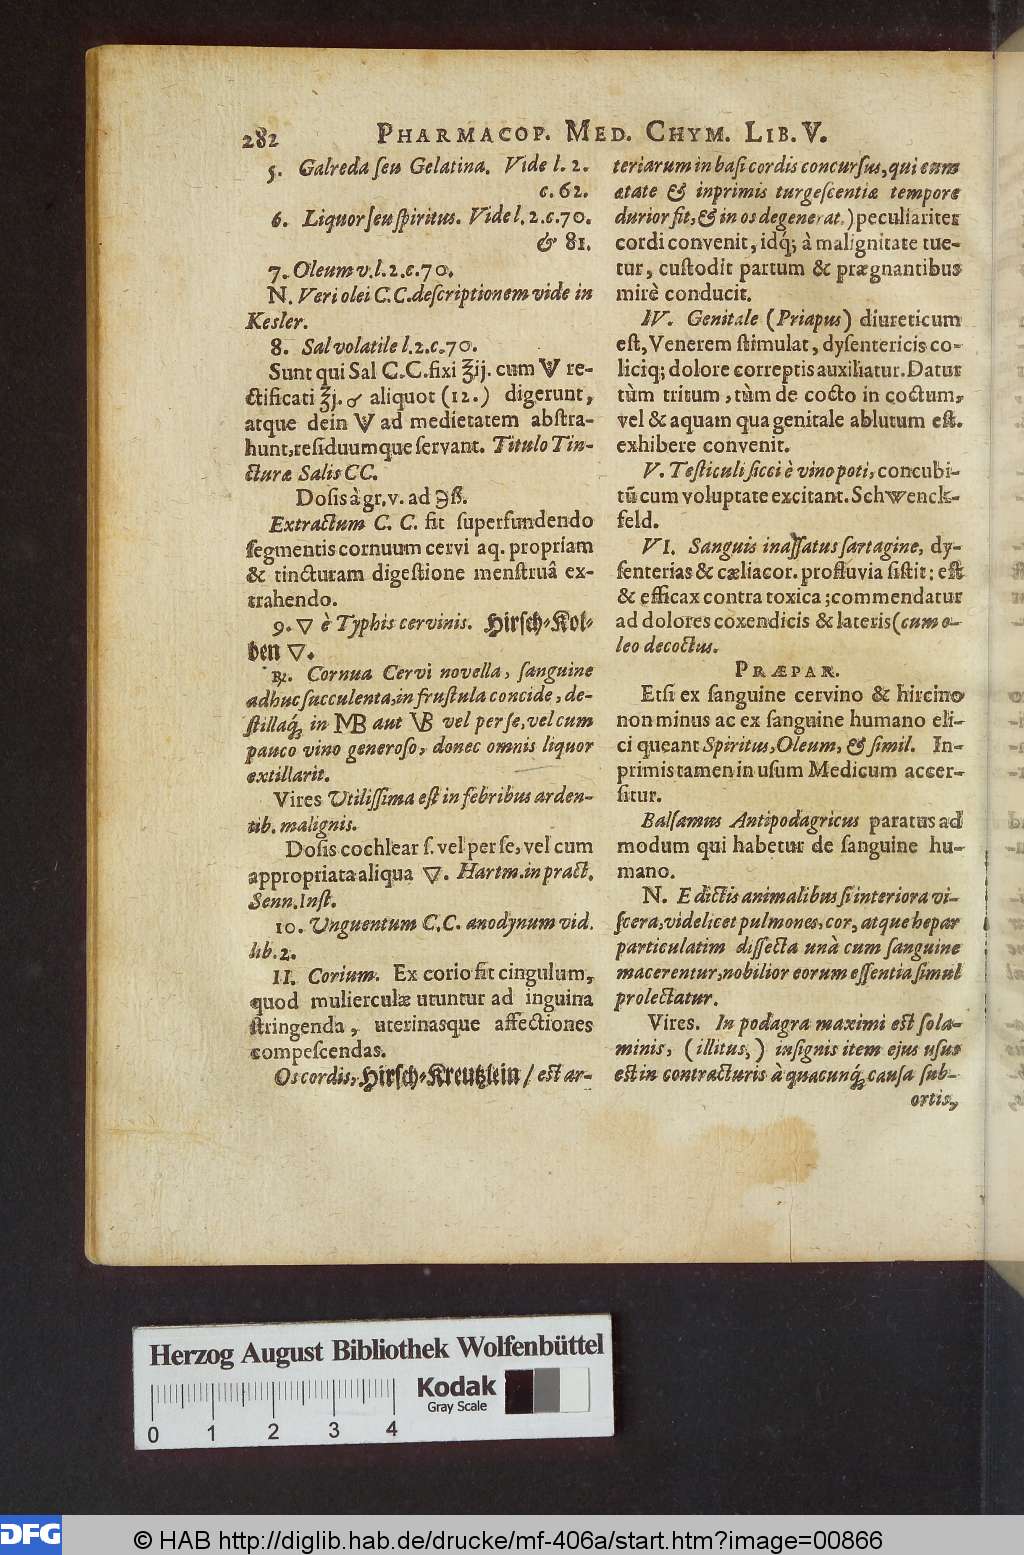 282 PHARMACOP. MED. CHYM. LIB. V.
5. Galreda ſeu Gelatina. Vide l. 2.
c. 62.
6. Liquor ſeu ſpiritus. Vide l. 2. c. 70.
& 81.
7. Oleum v. l. 2. c. 70.
N. Veri olei C. C. deſcriptionem vide in
Kesler.
8. Sal volatile l. 2. c. 70.
Sunt qui Sal C. C. fixi ℥ij. cum re-
ctificati ℥j. aliquot (12.) digerunt,
atque dein ad medietatem abſtra-
hunt, reſiduumque ſervant. Titulo Tin-
cturæ Salis CC.
Doſis à gr. v. ad ℈ß.
Extractum C. C. fit ſuperfundendo
ſegmentis cornuum cervi aq. propriam
& tincturam digeſtione menſtruâ ex-
trahendo.
9. ▽ è Typhis cervinis. Hirſch-Kol-
ben ▽.
℞. Cornua Cervi novella, ſanguine
adhuc ſucculenta, in fruſtula concide, de-
ſtillaq́; in MB aut VB vel per ſe, vel cum
pauco vino generoſo, donec omnis liquor
extillarit.
Vires Utiliſſima eſt in febribus arden-
tib. malignis.
Doſis cochlear ſ. vel per ſe, vel cum
appropriata aliqua ▽. Hartm. in pract.
Senn. Inſt.
10. Unguentum C. C. anodynum vid.
lib. 2.
11. Corium. Ex corio fit cingulum,
quod mulierculæ utuntur ad inguina
ſtringenda, uterinasque affectiones
compeſcendas.
Os cordis, Hirſch-Kreutzlein / eſt ar-
teriarum in baſi cordis concurſus, qui cum
ætate & inprimis turgeſcentiæ tempore
durior fit, & in os degenerat.) peculiariter
cordi convenit, idq́; à malignitate tue-
tur, cuſtodit partum & prægnantibus
mirè conducit.
IV. Genitale (Priapus) diureticum
eſt, Venerem ſtimulat, dyſentericis co-
liciq; dolore correptis auxiliatur. Datur
tùm tritum, tùm de cocto in coctum,
vel & aquam qua genitale ablutum eſt.
exhibere convenit.
V. Teſticuli ſicci è vino poti, concubi-
tũ cum voluptate excitant. Schwenck-
feld.
VI. Sanguis inaſſatus ſartagine, dy-
ſenterias & cæliacor. profluvia ſiſtit: eſt
& efficax contra toxica; commendatur
ad dolores coxendicis & lateris (cum o-
leo decoctus.
PRÆPAR.
Etſi ex ſanguine cervino & hircino
non minus ac ex ſanguine humano eli-
ci queant Spiritus, Oleum, & ſimil. In-
primis tamen in uſum Medicum accer-
ſitur.
Balſamus Antipodagricus paratus ad
modum qui habetur de ſanguine hu-
mano.
N. E dictis animalibus ſi interiora vi-
ſcera, videlicet pulmones, cor, atque hepar
particulatim diſſecta unà cum ſanguine
macerentur, nobilior eorum eſſentia ſimul
prolectatur.
Vires. In podagra maximi eſt ſola-
minis, (illitus,) inſignis item ejus uſus
eſt in contracturis à quacunq́; cauſa ſub-
ortis,
Herzog August Bibliothek Wolfenbüttel
Kodak
Gray Scale
0 1 2 3 4
DFG
© HAB http://diglib.hab.de/drucke/mf-406a/start.htm?image=00866